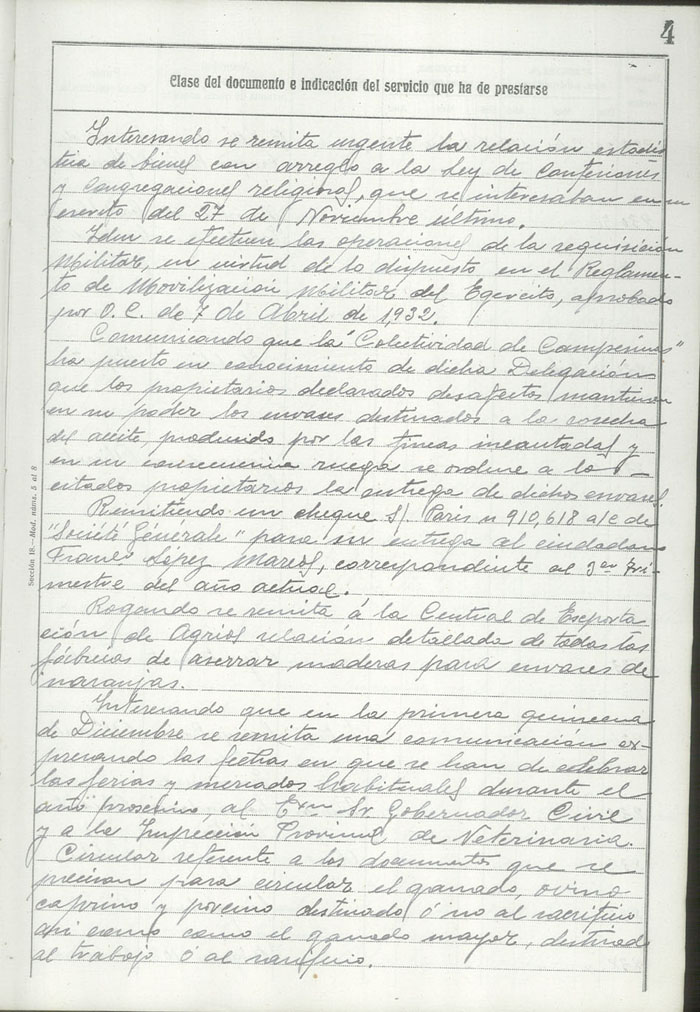 4
Clase del documento e indicación del servicio que ha de prestarse
Interesando se remita urgente la relación estadís
tica de bienes con arreglo a la Ley de Confesiones
y Congregaciones religiosas, que se interesaban en su
escrito del 27 de Noviembre último.
Idem se efectuen las operaciones de la requisición
Militar, en virtud de lo dispuesto en el Reglamen-
to de Movilización Militar del Egercito, aprobado
por O.C. de 7 de Abril de 1932.
Comunicando que la "Colectividad de Campesinos"
ha puesto en conocimiento de dicha Delegación
que los propietarios declarados desafectos mantienen
en su poder los envases destinados a la cosecha
del aceite, producido por las fincas incautadas y
en su consecuencia ruega se ordene a los
citados propietarios la entrega de dichos envases.
Remitiendo un cheque S/. Paris nº 910,618 a/c de
"Société Générale" para su entrega al ciudadano
Franco López Marcos, correspondiente al 3er tri-
mestre del año actual.
Rogando se remita á la Central de Exporta
ción de Agrios relación detallada de todas las
fábricas de aserrar maderas para envases de
naranjas.
Interesando que en la primera quincena
de Diciembre se remita una comunicación ex-
presando las fechas en que se han de celebrar
las ferias y mercados habituales durante el
año prosimo, al Exmo Sr. Gobernador Civil
y a la Inspección Provincial de Veterinaria.
Circular referente a los documentos que se
precisan para circular el ganado, ovino
caprino y porcino destinado ó no al sacrificio
asi como como el ganado mayor, destinado
al trabajo ó al sacrificio.
Sección 18.—Mod. núms. 5 al 8